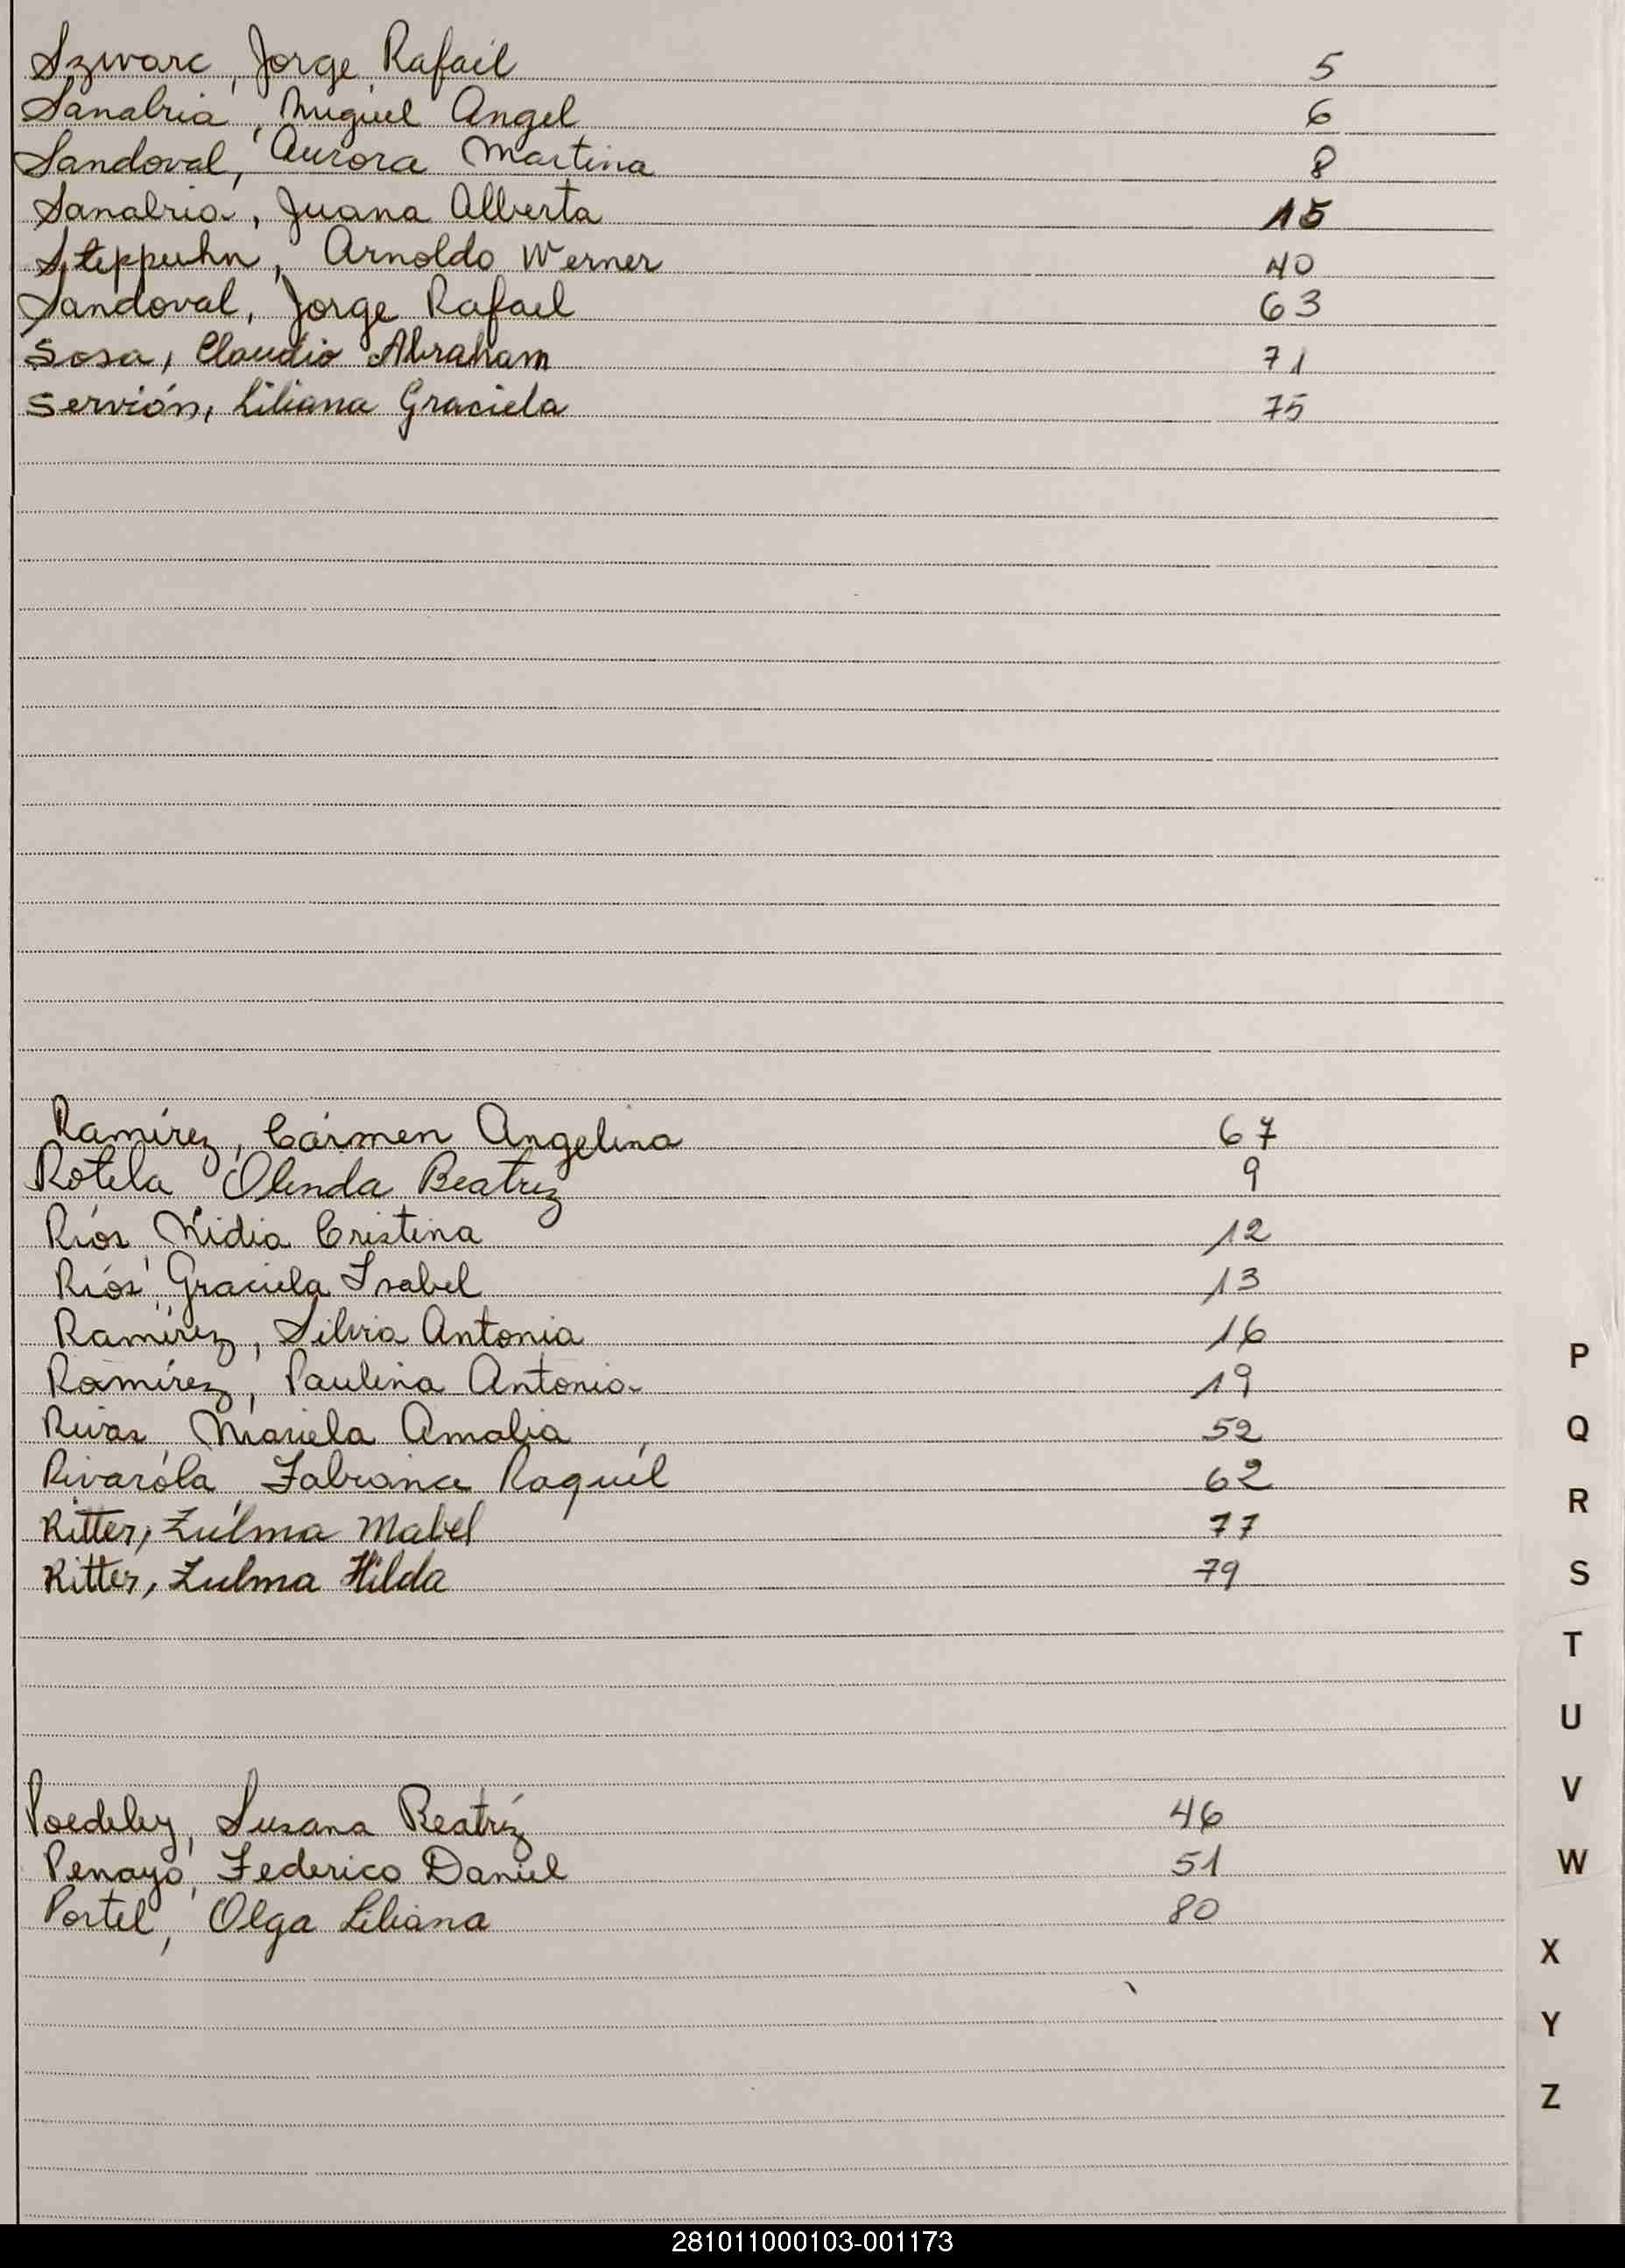 Szwarc, Jorge Rafael 5
Sanabria, Miguel Angel 6
Sandoval, Aurora Martina 8
Sanabria, Juana Alberta 15
Steppuhn, Arnoldo Werner 40
Sandoval, Jorge Rafael 63
Sosa, Claudio Abraham 71
Servión, Liliana Graciela 75
Ramírez, Cármen Angelina 67
Rotela Olinda Beatriz 9
Ríos, Nidia Cristina 12
Ríos, Graciela Isabel 13
Ramírez, Silvia Antonia 16
Ramírez, Paulina Antonia 19
Rivas Mariela Amalia 52
Rivarola, Raquél 62
Ritter, Zulma Mabel 77
Ritter, Zulma Hilda 79
Susana Beatríz 46
Penayo, Federico Daniel 51
Portel, Olga Liliana 80
P
Q
R
S
T
U
V
W
X
Y
Z
281011000103-001173